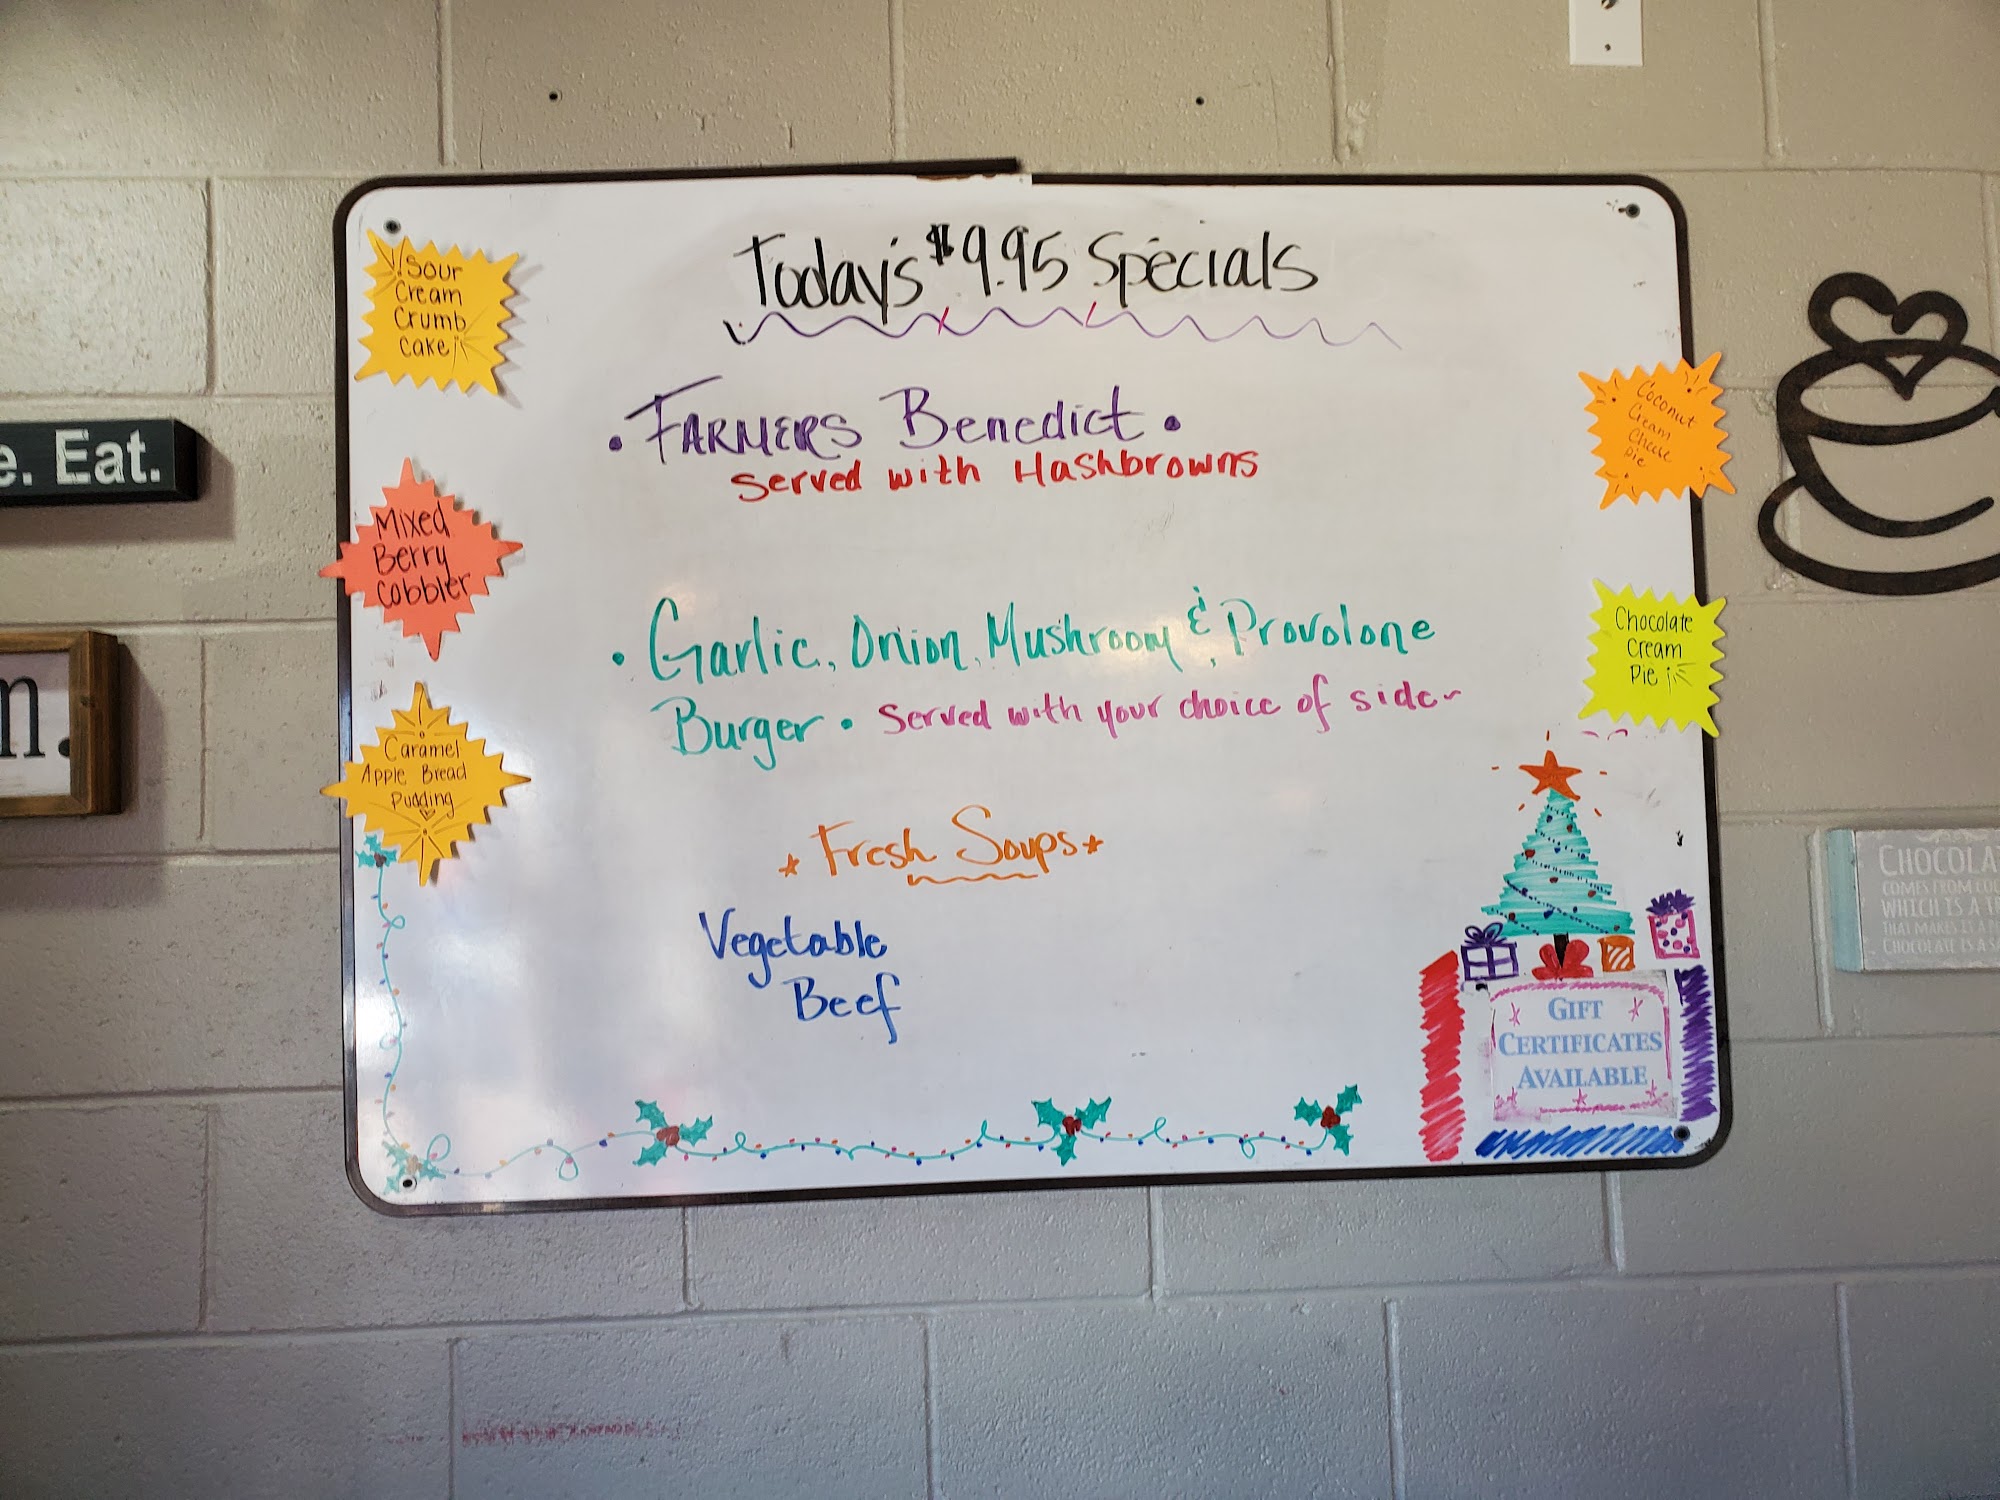 Today's $9.95 Specials
• FARMERS Benedict •
Served with Hashbrowns
• Garlic, Onion, Mushroom & Provolone
Burger • Served with your choice of side~
Fresh Soups
Vegetable
Beef
Sour
Cream
Crumb
Cake
Mixed
Berry
Cobbler
Caramel
Apple Bread
Pudding
Coconut
Cream
Cheese
Pie
Chocolate
Cream
Pie
GIFT
CERTIFICATES
AVAILABLE
e. Eat.
n.
CHOCOLA
COMES FROM COC
WHICH IS A TR
THAT MAKES IT A
CHOCOLATE IS A SA